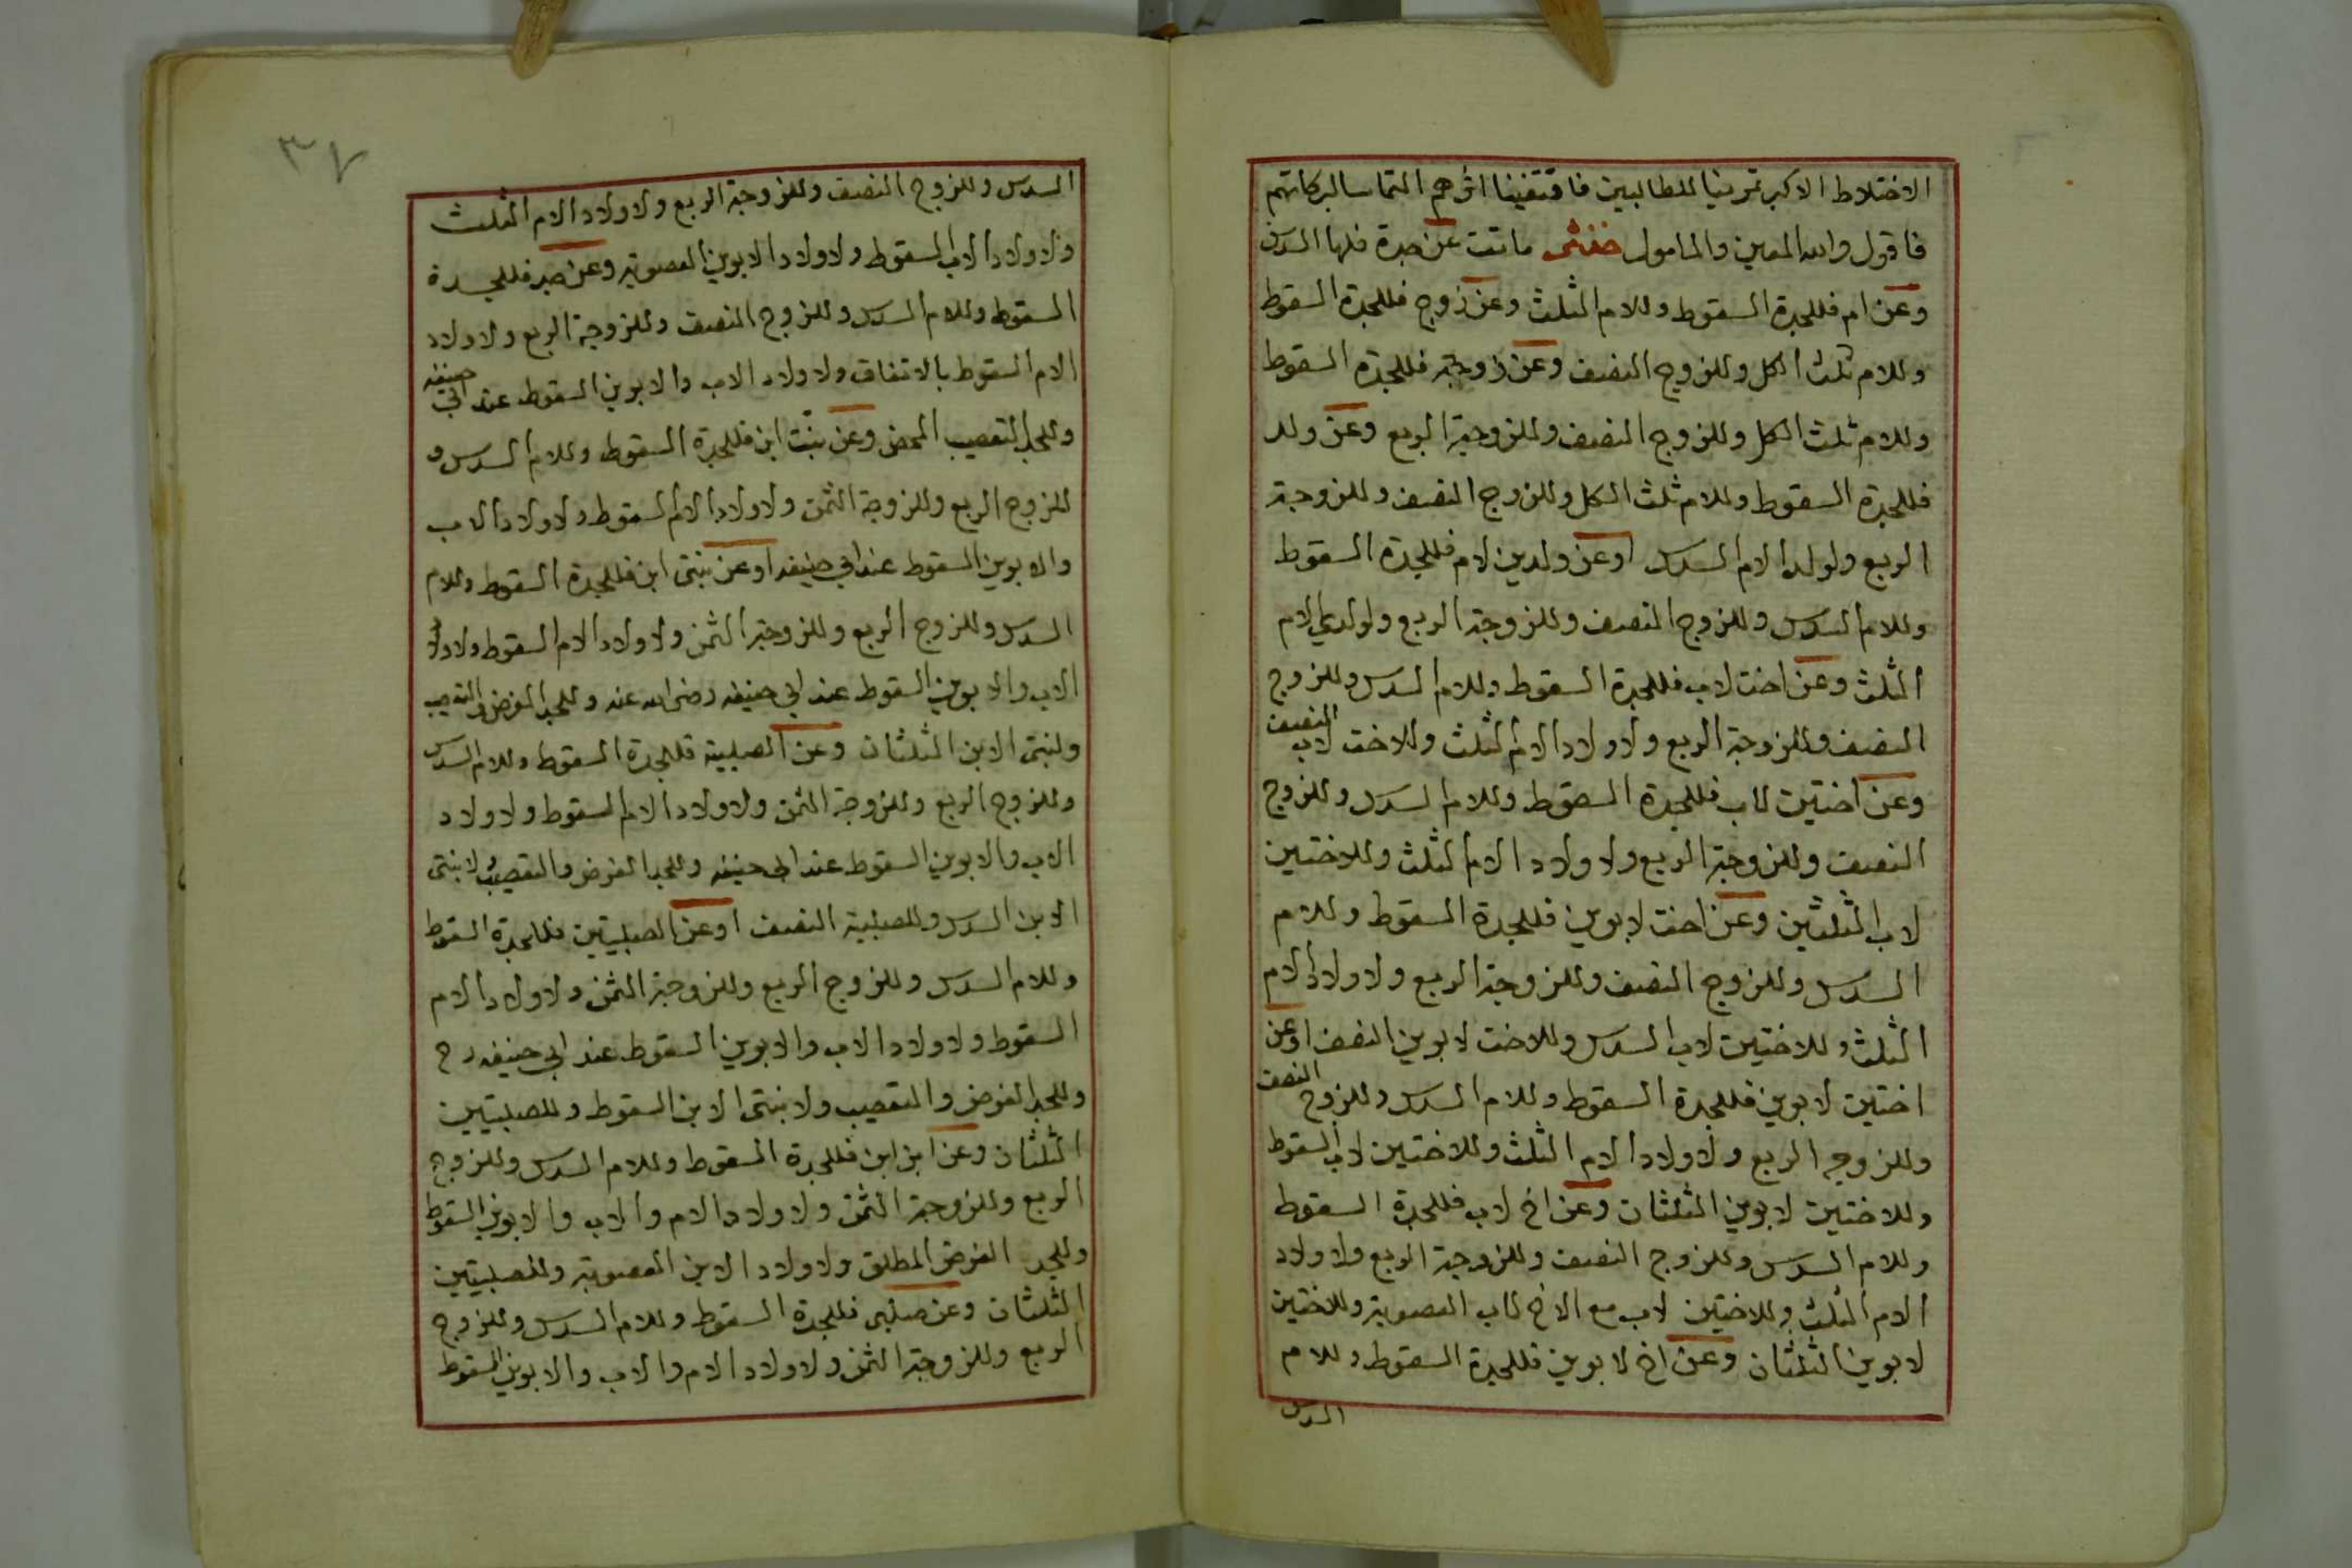 الاختلاط الاكبر تمرينا للطالبين فاقتفينا اثرهم التماسا لبركاتهم
فاقول والله المعين والمامول خنثى ماتت عن جدة فلها السدس
وعن ام فللجدة السقوط وللام الثلث وعن زوج فللجدة السقوط
وللام ثلث الكل وللزوج النصف وعن زوجة فللجدة السقوط
وللام ثلث الكل وللزوج النصف وللزوجة الربع وعن ولد
فللجدة السقوط وللام ثلث الكل وللزوج النصف وللزوجة
الربع ولولد الام السدس اوعن ولدين لام فللجدة السقوط
وللام السدس وللزوج النصف وللزوجة الربع ولولدي الام
الثلث وعن اخت لاب فللجدة السقوط وللام السدس وللزوج
النصف وللزوجة الربع ولاولاد الام الثلث وللاخت لاب النصف
وعن اختين لاب فللجدة السقوط وللام السدس وللزوج
النصف وللزوجة الربع ولاولاد الام الثلث وللاختين
لاب الثلثين وعن اخت لابوين فللجدة السقوط وللام
السدس وللزوج النصف وللزوجة الربع ولاولاد الام
الثلث وللاختين لاب السدس وللاخت لابوين النصف اوعن
اختين لابوين فللجدة السقوط وللام السدس وللزوج النصف
وللزوجه الربع ولاولاد الام الثلث وللاختين لاب السقوط
وللاختين لابوين الثلثان وعن اخ لاب فللجدة السقوط
وللام السدس وللزوج النصف وللزوجة الربع ولاولاد
الام الثلث وللاختين لاب مع الاخ لاب العصوبة وللاختين
لابوين الثلثان وعن اخ لابوين فللجدة السقوط وللام
السدس
٣٧
السدس وللزوج النصف وللزوجة الربع ولاولاد الام الثلث
ولاولاد الاب السقوط ولاولاد الابوين العصوبة وعن جد فللجدة
السقوط وللام السدس وللزوج النصف وللزوجة الربع ولاولاد
الام السقوط بالاتفاق ولاولاد الاب والابوين السقوط عند ابي حنيفه
وللجد التعصيب المحض وعن بنت ابن فللجدة السقوط وللام السدس و
للزوج الربع وللزوجة الثمن ولاولاد الام السقوط ولاولاد الاب
والابوين السقوط عند ابي حنيفه اوعن بنتى ابن فللجدة السقوط وللام
السدس وللزوج الربع وللزوجة الثمن ولاولاد الام السقوط ولاولاد
الاب والابوين السقوط عند ابي حنيفه رضى الله عنه وللجد الفرض والتعصيب
ولبنتى الابن الثلثان وعن الصلبية فللجدة السقوط وللام السدس
وللزوج الربع وللزوجة الثمن ولاولاد الام السقوط ولاولاد
الاب والابوين السقوط عند ابي حنيفه وللجد الفرض والتعصيب ولابنتى
الابن السدس وللصلبية النصف اوعن الصلبيتين فللجدة السقوط
وللام السدس وللزوج الربع وللزوجة الثمن ولاولاد الام
السقوط ولاولاد الاب والابوين السقوط عند ابي حنيفه رح
وللجد الفرض والتعصيب ولابنتى الابن السقوط وللصلبيتين
الثلثان وعن ابن ابن فللجدة السقوط وللام السدس وللزوج
الربع وللزوجة الثمن ولاولاد الام والاب والابوين السقوط
وللجد الفرض المطلق ولاولاد الابن العصوبة وللصلبيتين
الثلثان وعن صلبى فللجدة السقوط وللام السدس وللزوج
الربع وللزوجة الثمن ولاولاد الام والاب والابوين السقوط